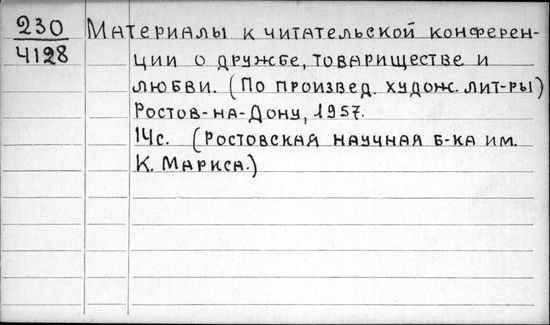 230
4128
Материалы к читательской конферен-
ции о дружбе, товариществе и
любви. (По произвед. худож. лит-ры)
Ростов-на-Дону, 1957.
14с. (Ростовская научная б-ка им.
К. Маркса.)